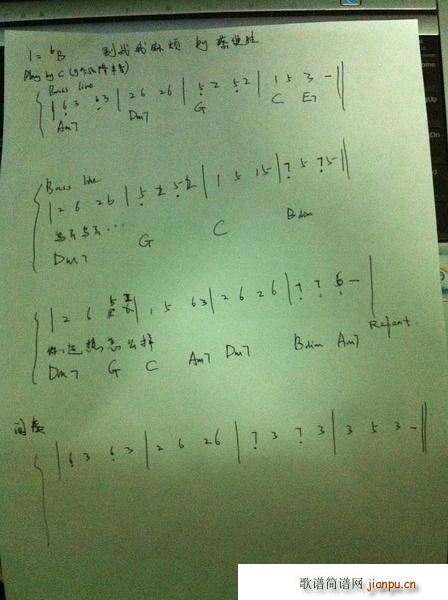 1 = ♭B 别找我麻烦 by 蔡健雅
Play by C
Bass line
| 6 3 6 3 | 2 6 2 6 | 5 2 5 2 | 1 5 3 - ||
Am7 Dm7 G C E7
Bass line
| 2 6 2 6 | 5 2 5 2 | 1 5 1 5 | 7 5 7 5 ||
Dm7 G C Bdim
| 2 6 5 | 1 5 6 3 | 2 6 2 6 | 7 7 6 - |
你还想怎么样
Dm7 G C Am7 Dm7 Bdim Am7 Repeat.
间奏
| 6 3 6 3 | 2 6 2 6 | 7 3 7 3 | 3 5 3 - ||
歌谱简谱网 jianpu.cn